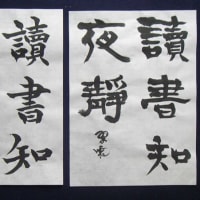 讀書知
夜靜
讀書知